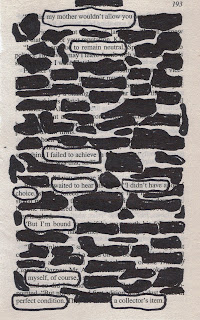 193
my mother wouldn't allow you
to remain neutral.
I failed to achieve
waited to hear "I didn't have a
choice.
But I'm bound
myself, of course,
perfect condition, a collector's item.